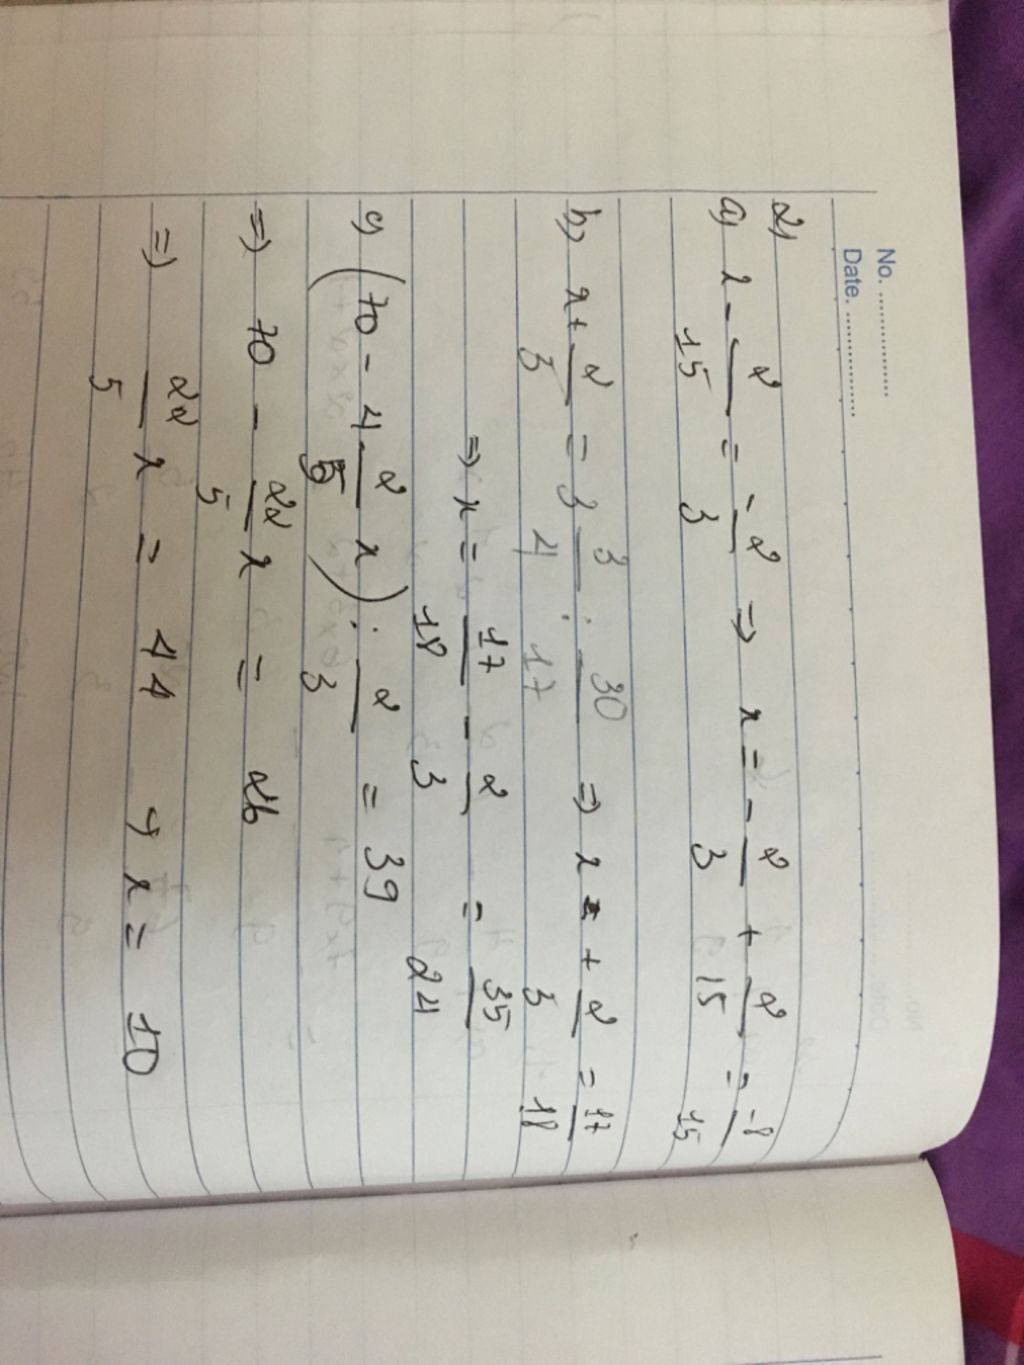 No. ................
Date. ................
2)
a) x - 2/15 = -2/3 => x = -2/3 + 2/15 = -8/15
b) x + 2/3 = 3 3/4 : 30/17 => x = + 2/3 = 17/18
=> x = 17/18 - 2/3 = 35/24
c) (70 - 4 2/5 x) : 2/3 = 39
=> 70 - 22/5 x = 26
=> 22/5 x = 44 → x = 10